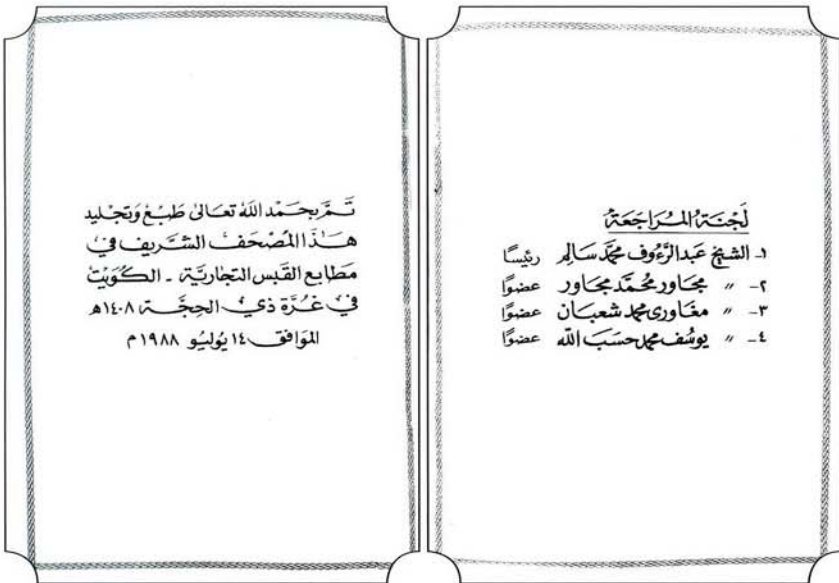 لَجْنَةُ المُرَاجَعَةِ
١ـ الشيخ عبدالرَّءُوف محمَّد سَالِم رئيسًا
٢- 〃 مجَاور محُمَّد مجَاور عضوًا
٣- 〃 مغَاورى محمد شعبان عضوًا
٤- 〃 يوسُف محمد حسَبَ اللّه عضوًا
تَمَّ بحَمْد اللَّه تعَالىٰ طَبْعُ وَتجَليد
هَٰذَا المُصْحَف الشَّريف في
مطابع القَبَس التجَاريَّة - الكُوَيْت
في غُرَّة ذي الحِجَّة ١٤٠٨ه
المَوَافق ١٤ يُوليُو ١٩٨٨م